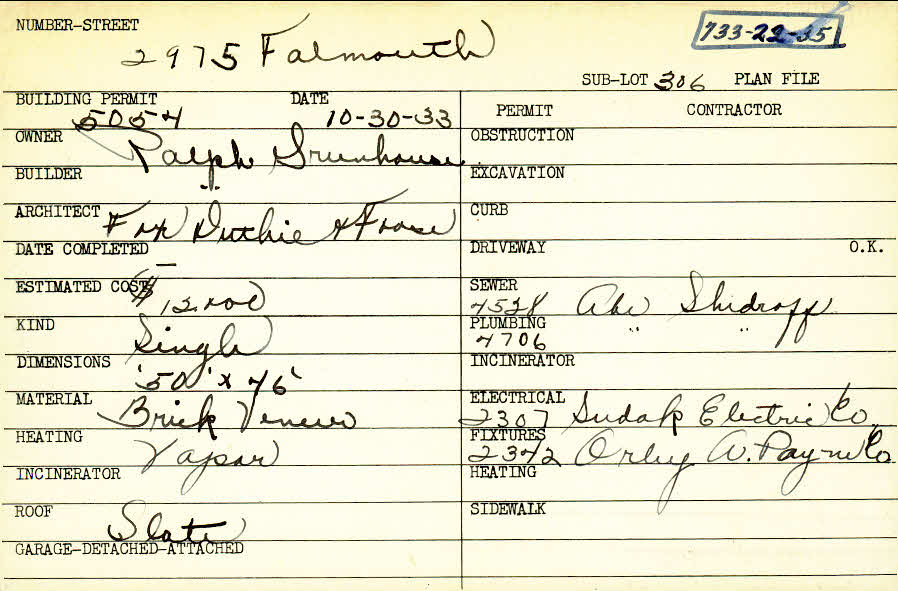 NUMBER-STREET
2975 Falmouth
733-22-35
SUB-LOT 306 PLAN FILE
BUILDING PERMIT DATE
5054 10-30-33
OWNER Ralph Grunhouse
BUILDER "
ARCHITECT Fox Duthie & Foose
DATE COMPLETED
ESTIMATED COST $12,000
KIND Single
DIMENSIONS 50' x 46'
MATERIAL Brick Veneer
HEATING Vapor
INCINERATOR
ROOF Slate
GARAGE-DETACHED-ATTACHED
PERMIT CONTRACTOR
OBSTRUCTION
EXCAVATION
CURB
DRIVEWAY O.K.
SEWER
4528 Abe
PLUMBING
4706 " "
INCINERATOR
ELECTRICAL
2307 Sudak Electric Co.
FIXTURES
2342 Orley A. Payne Co
HEATING
SIDEWALK